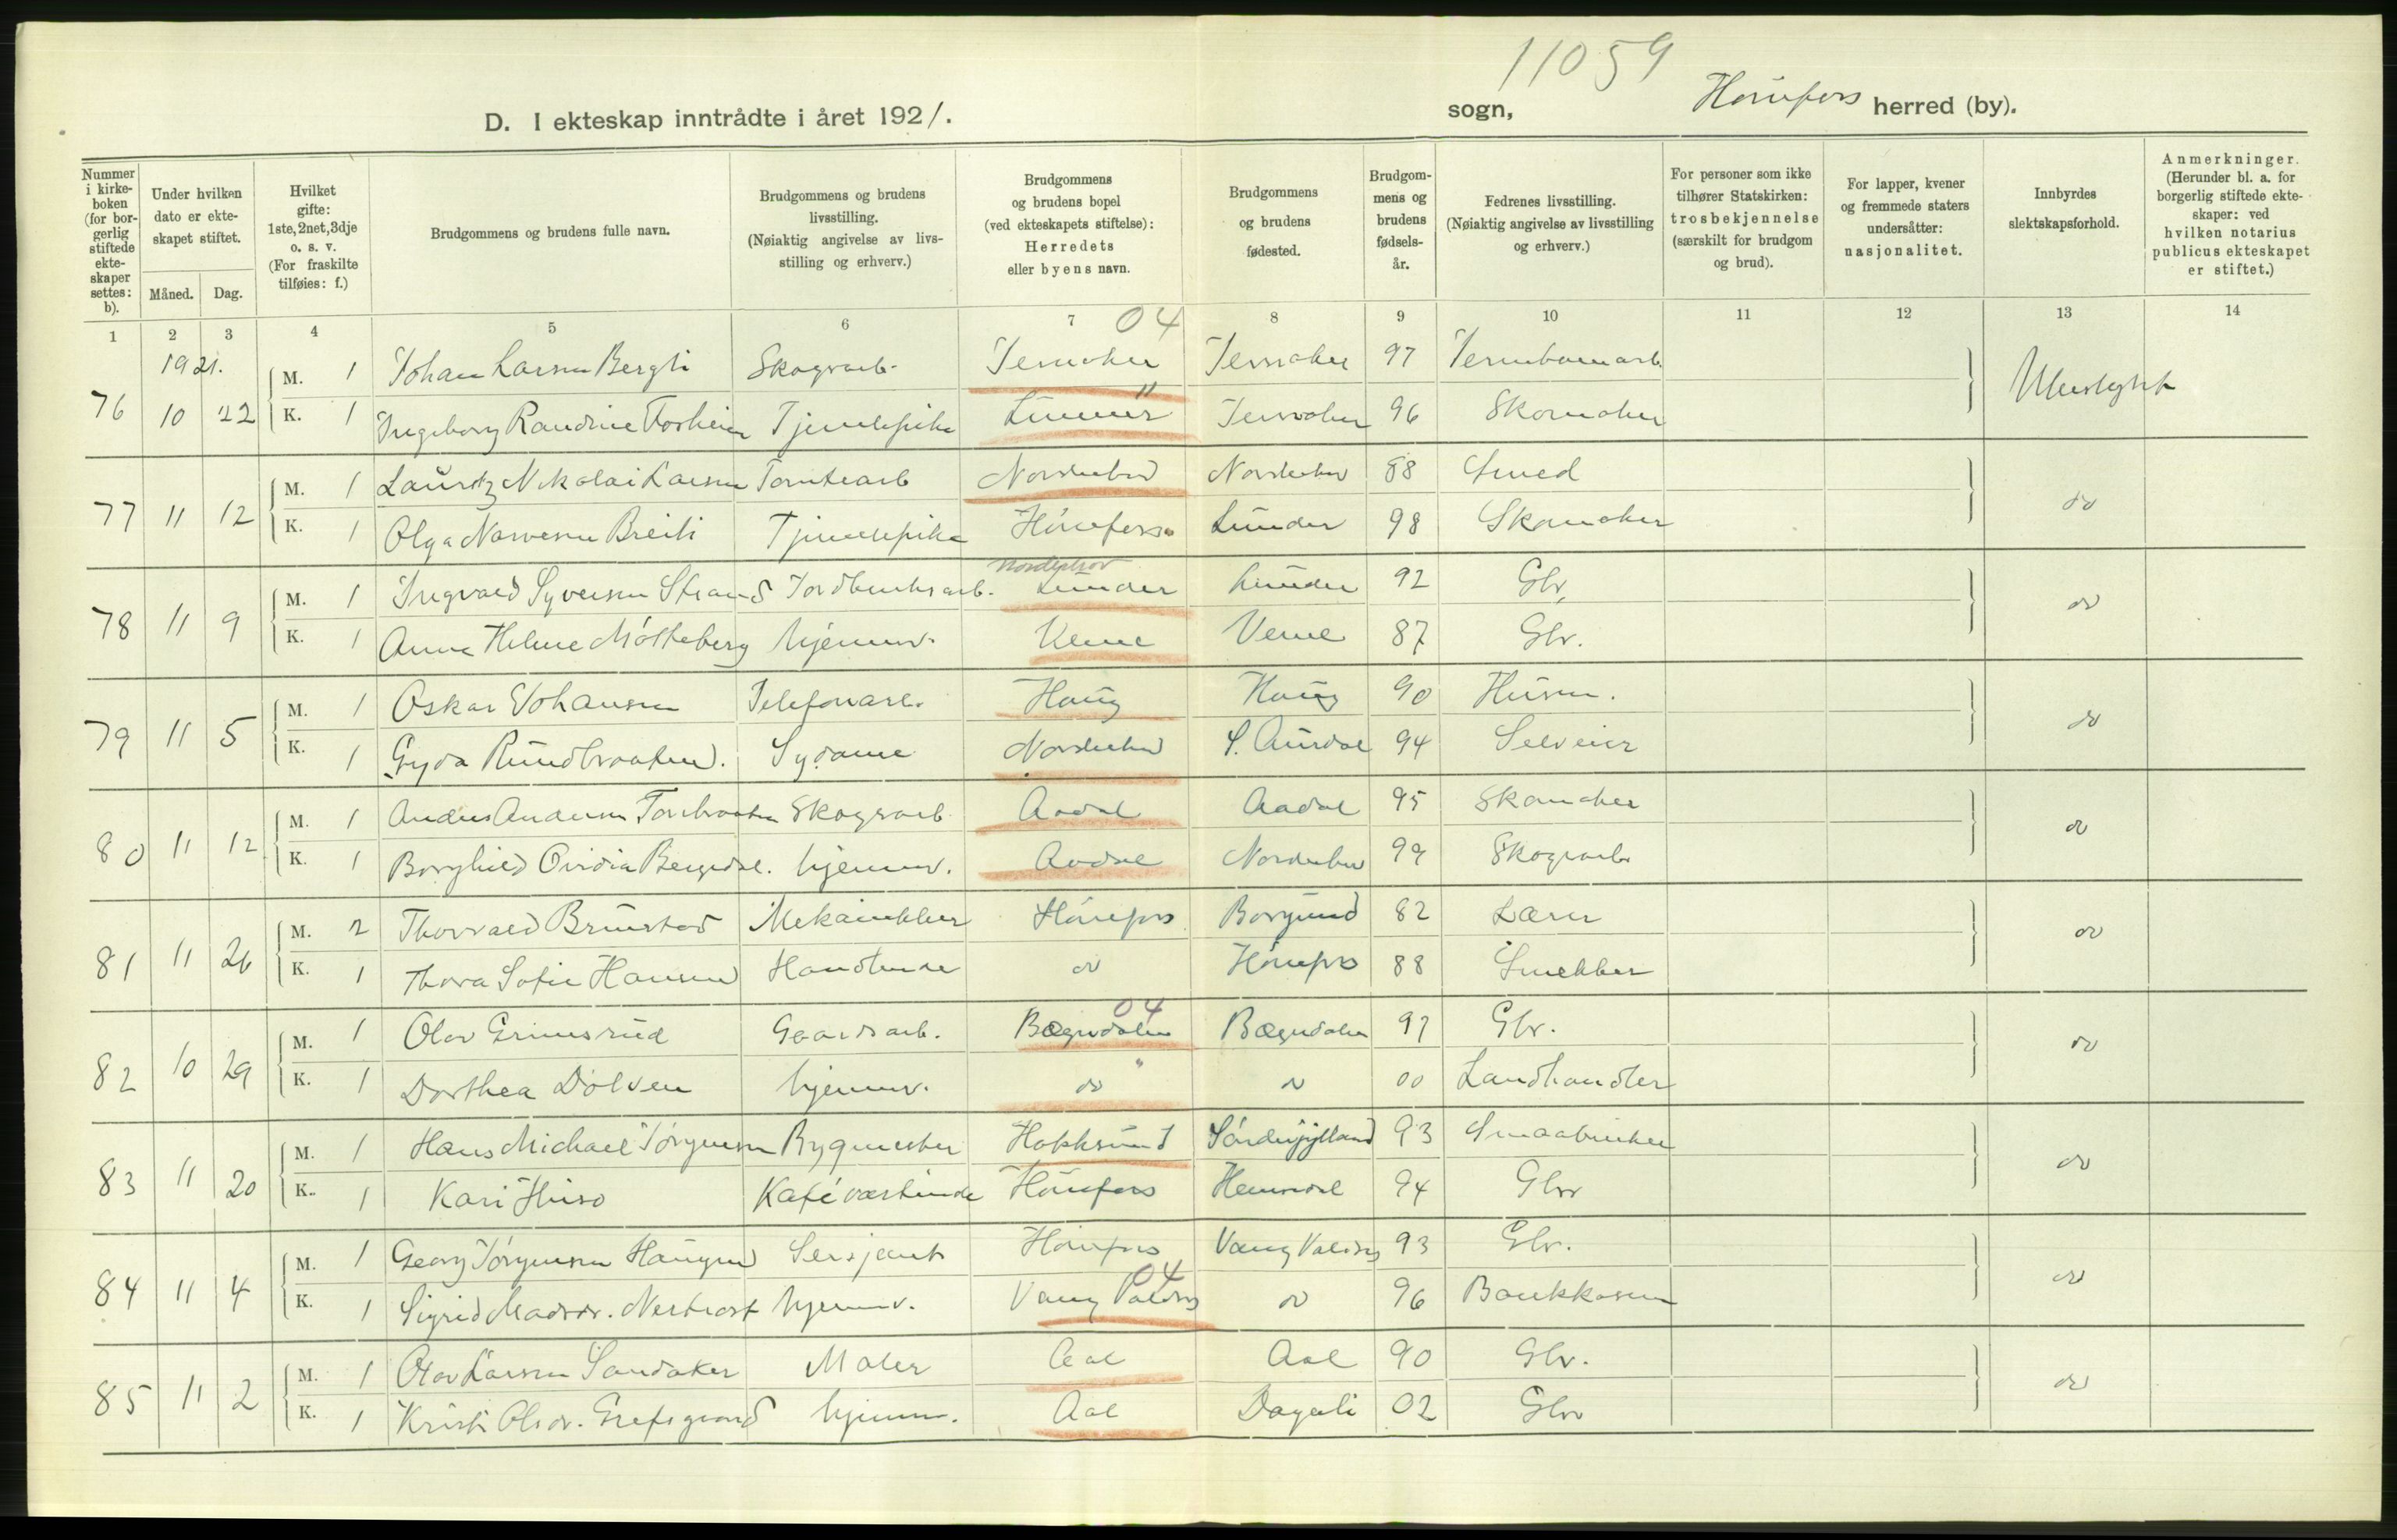 11059
D. I ekteskap inntrådte i året 1921.
sogn, Hönefors herred (by).
Nummer i kirkeboken (for borgerlig stiftede ekteskaper settes: b).
Under hvilken dato er ekteskapet stiftet.
Måned. Dag.
Hvilket gifte: 1ste, 2net, 3dje o. s. v. (For fraskilte tilføies: f.)
Brudgommens og brudens fulle navn.
Brudgommens og brudens livsstilling. (Nøiaktig angivelse av livsstilling og erhverv.)
Brudgommens og brudens bopel (ved ekteskapets stiftelse): Herredets eller byens navn.
Brudgommens og brudens fødested.
Brudgommens og brudens fødselsår.
Fedrenes livsstilling. (Nøiaktig angivelse av livsstilling og erhverv.)
For personer som ikke tilhører Statskirken: trosbekjennelse (særskilt for brudgom og brud).
For lapper, kvener og fremmede staters undersåtter: nasjonalitet.
Innbyrdes slektskapsforhold.
Anmerkninger. (Herunder bl. a. for borgerlig stiftede ekteskaper: ved hvilken notarius publicus ekteskapet er stiftet.)
1 2 3 4 5 6 7 8 9 10 11 12 13 14
04
1921.
M. 1 Johan Larsen Bergli Skogsarb. Jevnaker Jevnaker 97 Jernbanearb.
76 10 22 K. 1 Ingeborg Randine Tjenestepike Lunner Jevnaker 96 Skomaker Ubeslegtet
M. 1 Lauritz Nikolai Larsen Tomtearb Norderhov Norderhov 88 Smed
77 11 12 K. 1 Olga Narvesen Breili Tjenestepike Hönefoss Lunder 98 Skomaker do
Norderhov
M. 1 Ingvald Syversen Strand Jordbruksarb. Lunder Lunder 92 Gbr.
78 11 9 K. 1 Anna Helene Möltteberg hjemmev. Veme Veme 87 Gbr. do
M. 1 Oskar Johansen Telefonarb. Haug Haug 90 Husm.
79 11 5 K. 1 Gyda Rundbraaten. Sydame Norderhov S. Aurdal 94 Selveier do
M. 1 Anders Andersen Skogsarb Aadal Aadal 95 Skomaker
80 11 12 K. 1 Borghild Ovidia Bergsdal. hjemmev. Aadal Norderhov 99 Skogsarb do
M. 2 Thorvald Brunstad Mekaniker Hönefors Borgund 82 Lærer
81 11 26 K. 1 Thora Sofie Hansen Handlende do Hönefos 88 Snekker do
04
M. 1 Olav Grimsrud Gaardsarb. Bægndalen Bægndalen 97 Gbr.
82 10 29 K. 1 Dorthea Dölven hjemmev. do " do 00 Landhandler do
M. 1 Hans Michael Jörgensen Bygmester Hokksund Sönderjylland 93 Smaabruker
83 11 20 K. 1 Kari Huso Kaféværtinde Hönefoss Hemsedal 94 Gbr do
M. 1 Georg Jörgensen Haugen Sersjant Hönefos Vang Valdres 93 Gbr.
04
84 11 4 K. 1 Sigrid Madsdr. Nertrost hjemmev. Vang Valdres do 96 Bankkasserer do
M. 1 Olav Larsen Sandaker Maler Aal Aal 90 Gbr.
85 11 2 K. 1 Kristi Olsdr. Grefsgaard hjemm. Aal Dagali 02 Gbr do